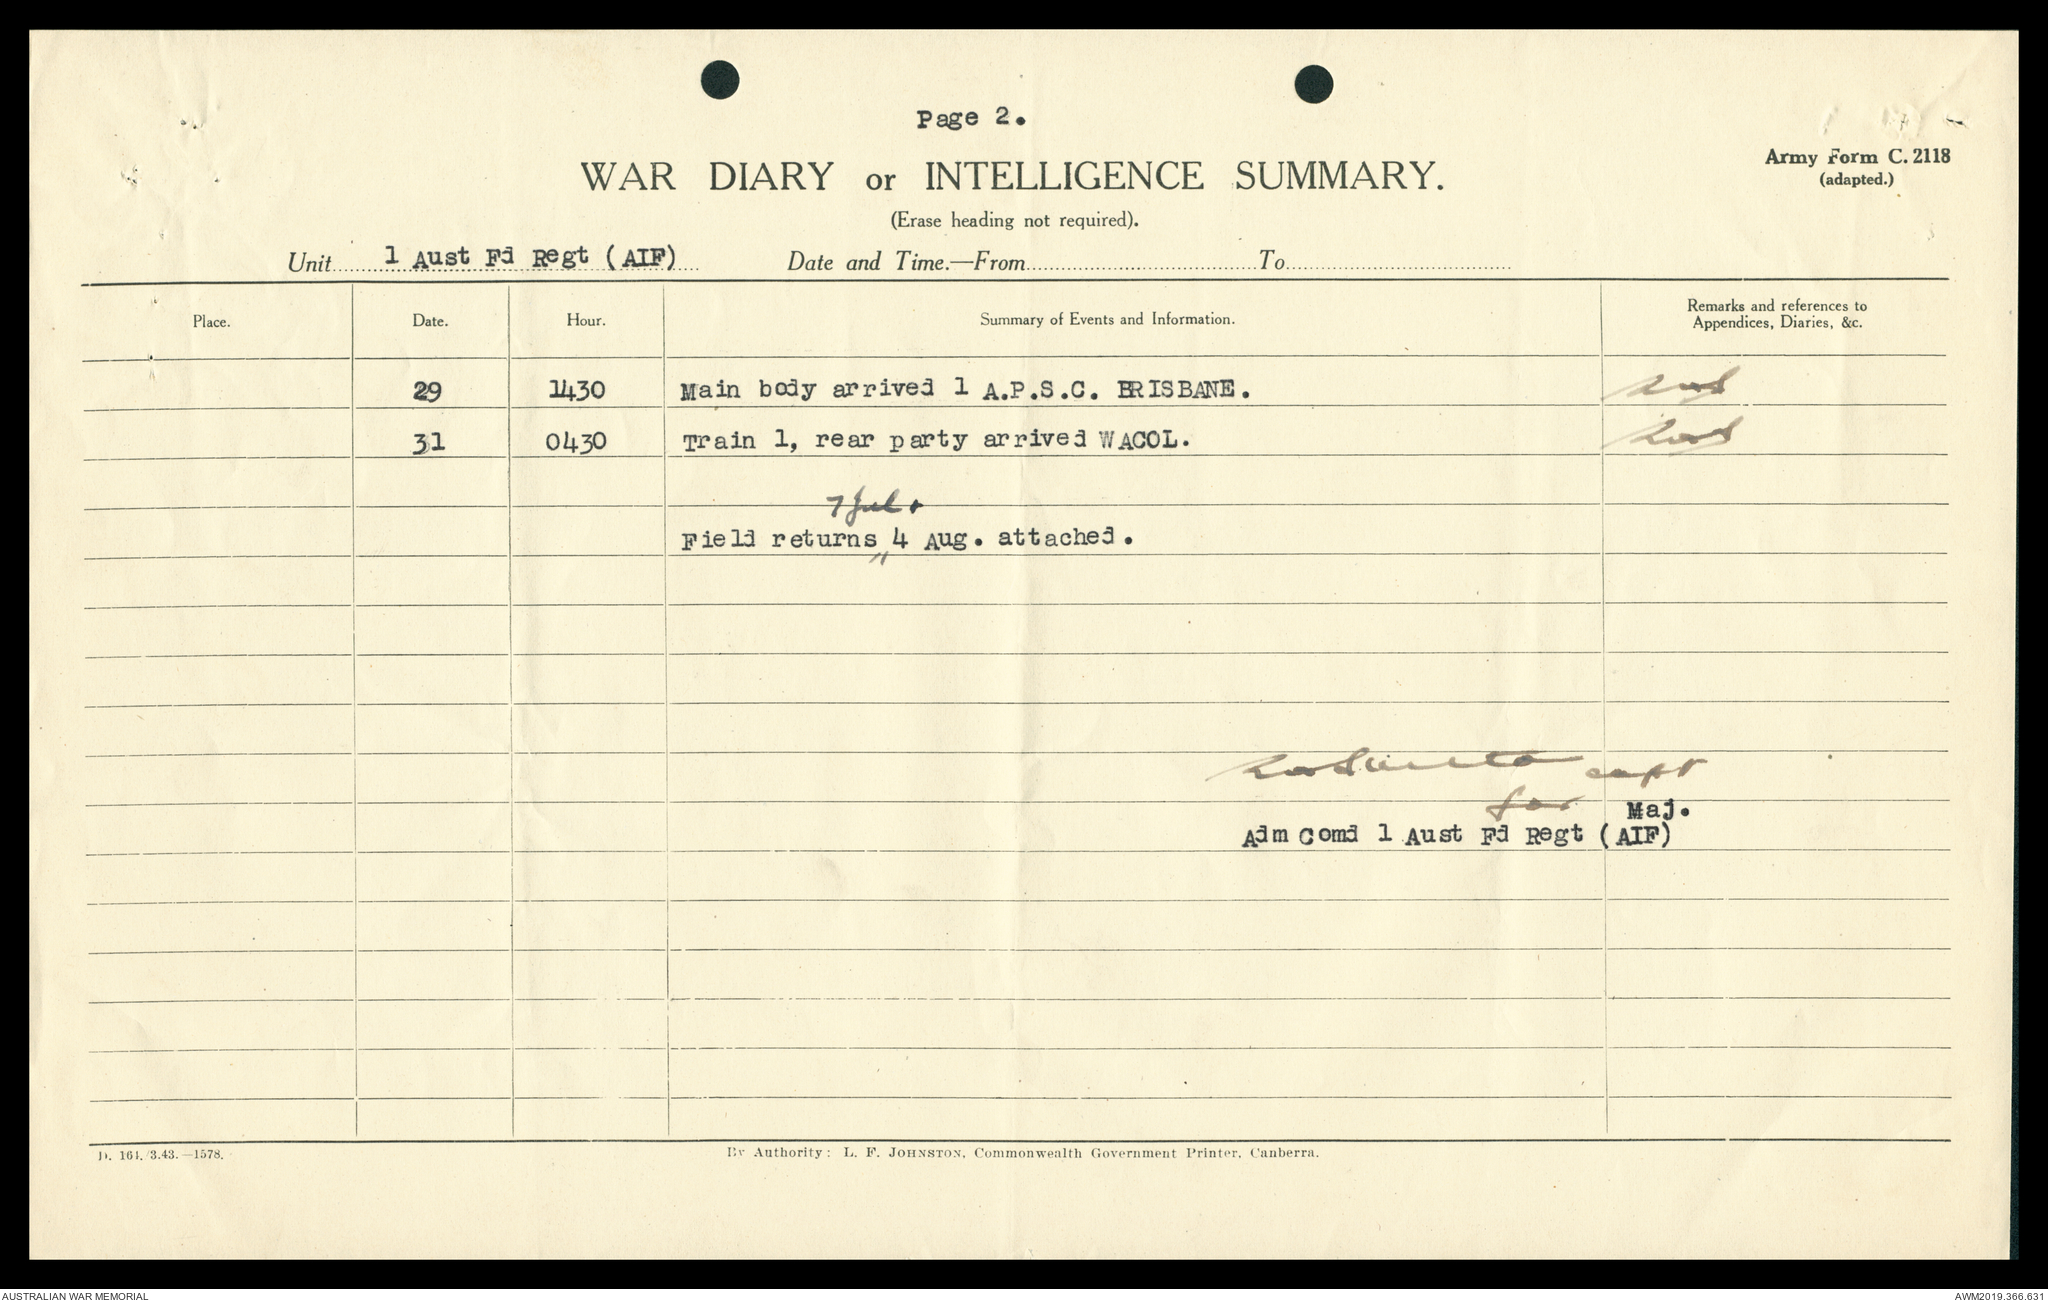 Page 2.
Army Form C. 2118
(adapted.)
WAR DIARY or INTELLIGENCE SUMMARY.
(Erase heading not required).
Unit 1 Aust Fd Regt (AIF) Date and Time.—From To
Place. Date. Hour. Summary of Events and Information. Remarks and references to
Appendices, Diaries, &c.
29 1430 Main body arrived 1 A.P.S.C. BRISBANE.
31 0430 Train 1, rear party arrived WACOL.
7 Jul +
Field returns 4 Aug. attached.
capt
for Maj.
Adm Comd 1 Aust Fd Regt (AIF)
D. 161./3.43.—1578.
By Authority: L. F. JOHNSTON, Commonwealth Government Printer, Canberra.
AUSTRALIAN WAR MEMORIAL
AWM2019.366.631